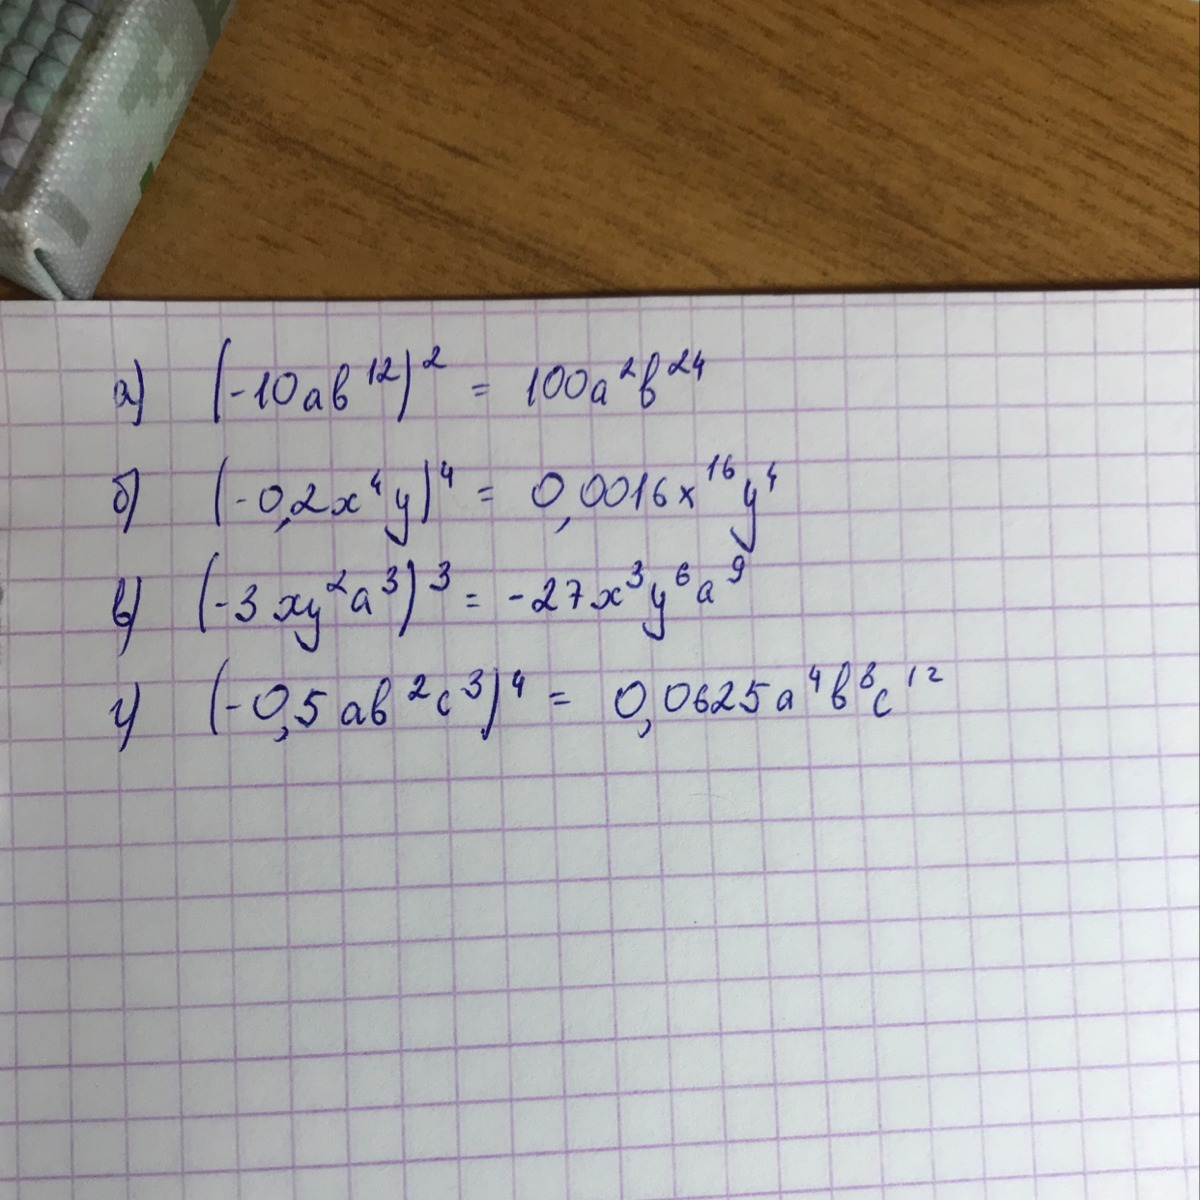 а) (-10ab¹²)² = 100a²b²⁴
б) (-0,2x⁴y)⁴ = 0,0016x¹⁶y⁴
в) (-3xy²a³)³ = -27x³y⁶a⁹
г) (-0,5ab²c³)⁴ = 0,0625a⁴b⁸c¹²